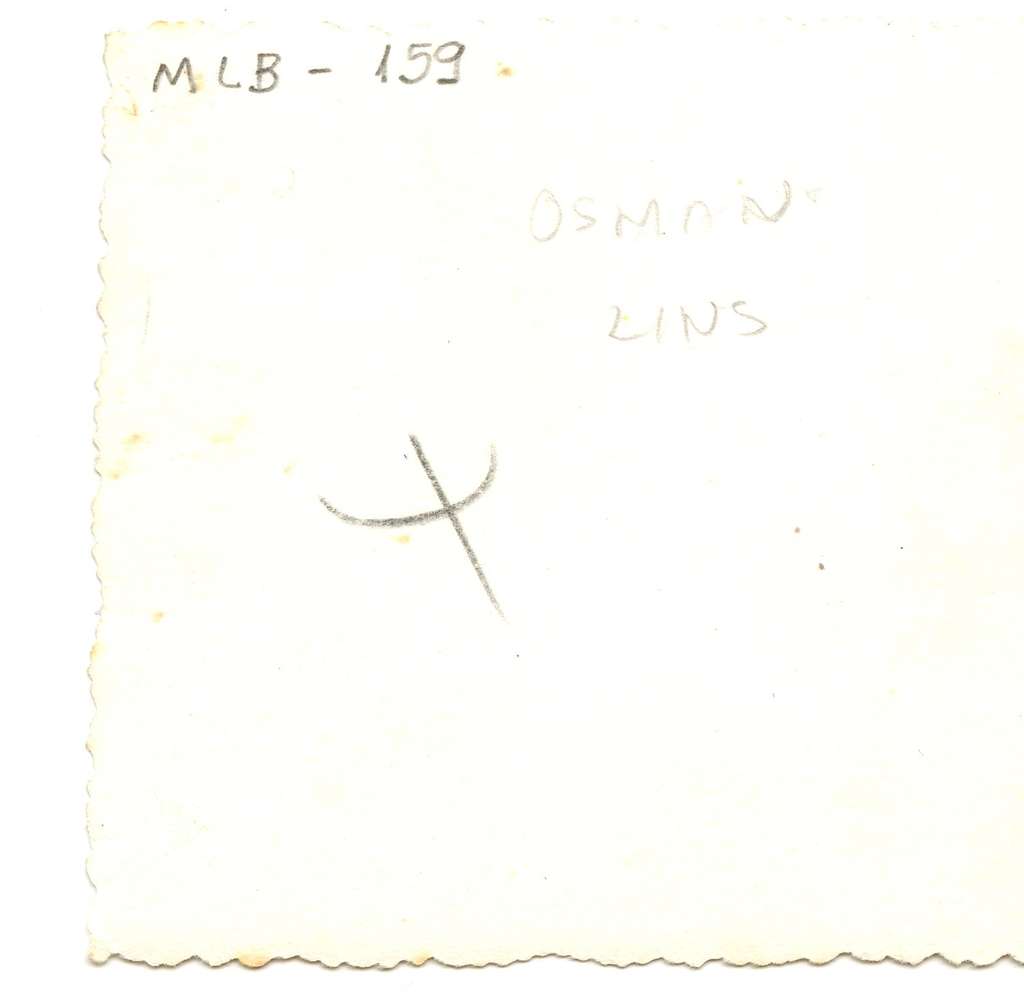 MLB - 159
OSMAN
LINS